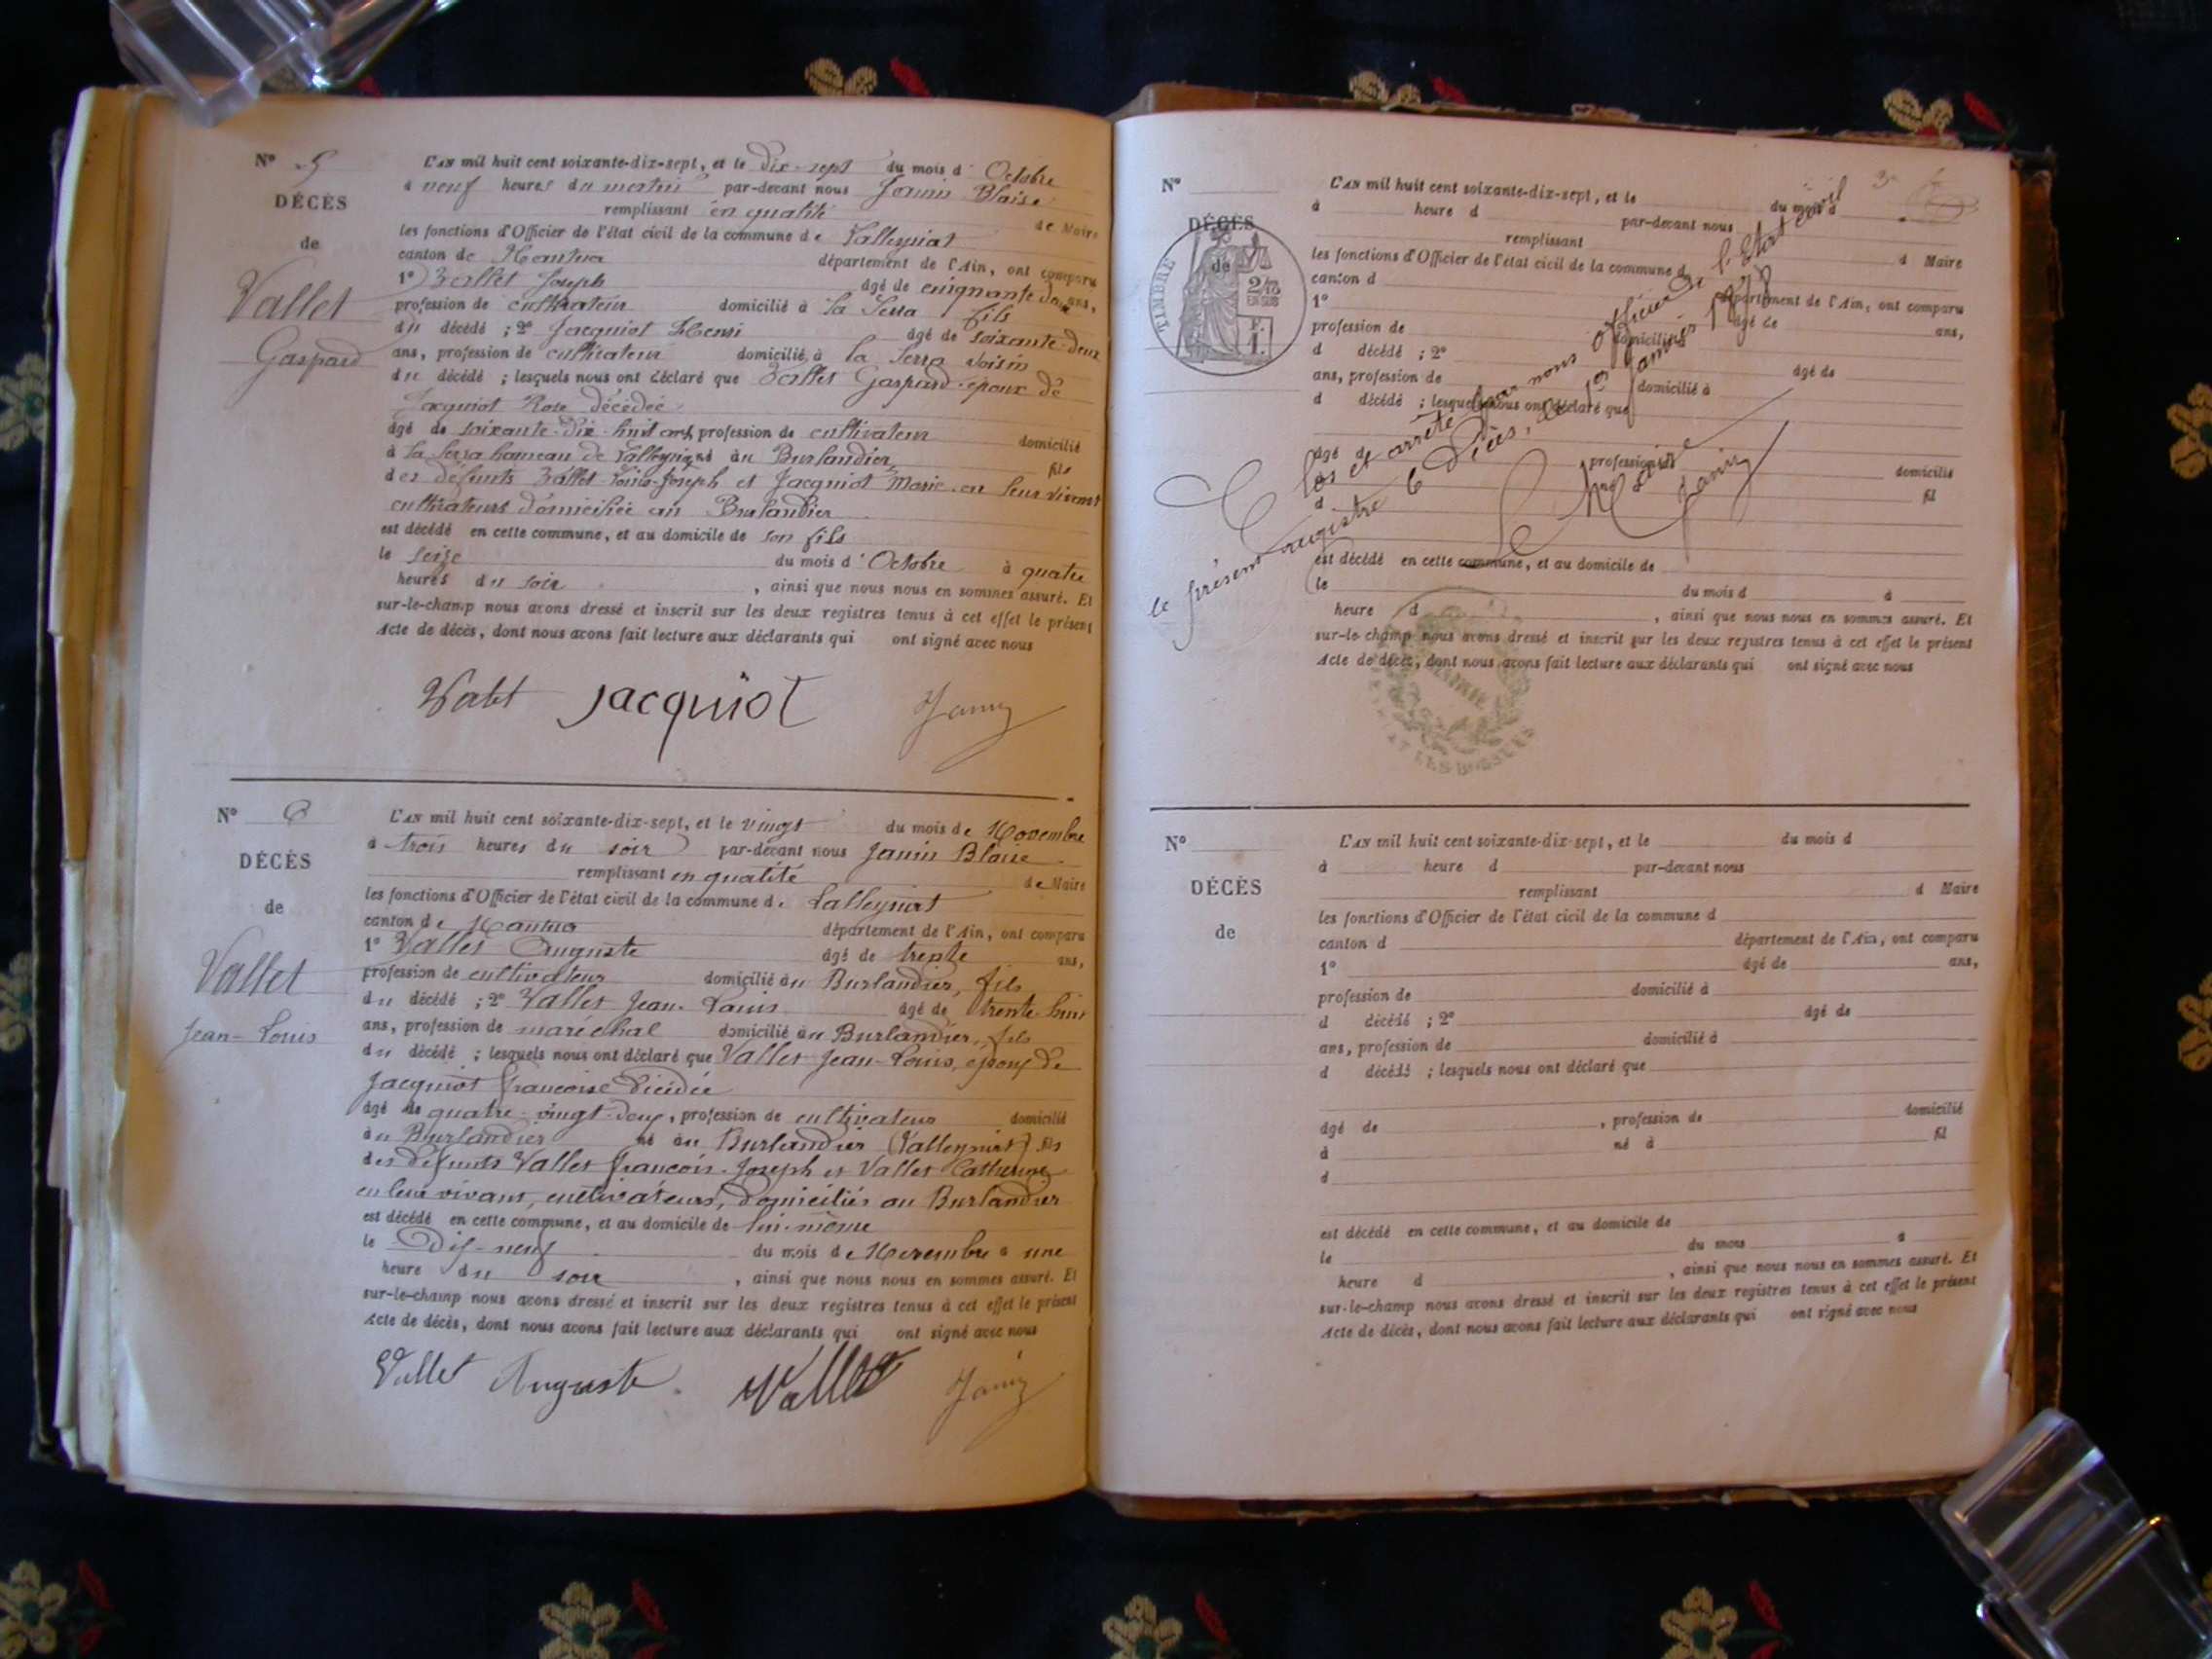 N° 5
DÉCÈS
de
Vallet
Gaspard
L'AN mil huit cent soixante-dix-sept, et le dix-sept du mois d'Octobre
à neuf heures du matin par-devant nous Janin Blaise
remplissant en qualité de Maire
les fonctions d'Officier de l'état civil de la commune de Lalleyriat
canton de Nantua département de l'Ain, ont comparu
1° Vallet Joseph âgé de cinquante deux ans,
profession de cultivateur domicilié à la Serra fils
du décédé ; 2° Jacquiot Henri âgé de soixante-deux
ans, profession de cultivateur domicilié à la Serra voisin
du décédé ; lesquels nous ont déclaré que Vallet Gaspard époux de
Jacquiot Rose décédée
âgé de soixante-dix-huit ans, profession de cultivateur domicilié
à la Serra hameau de Lalleyriat né au Burlandier fils
des défunts Vallet Louis-Joseph et Jacquiot Marie en leur vivant
cultivateurs domiciliés au Burlandier
est décédé en cette commune, et au domicile de son fils
le seize du mois d'Octobre à quatre
heures du soir, ainsi que nous nous en sommes assuré. Et
sur-le-champ nous avons dressé et inscrit sur les deux registres tenus à cet effet le présent
Acte de décès, dont nous avons fait lecture aux déclarants qui ont signé avec nous
Jacquiot Janin
N° 6
DÉCÈS
de
Vallet
Jean-Louis
L'AN mil huit cent soixante-dix-sept, et le vingt du mois de Novembre
à trois heures du soir par-devant nous Janin Blaise
remplissant en qualité de Maire
les fonctions d'Officier de l'état civil de la commune de Lalleyriat
canton de Nantua département de l'Ain, ont comparu
1° Vallet Auguste âgé de trente ans,
profession de cultivateur domicilié au Burlandier, fils
du décédé ; 2° Vallet Jean-Louis âgé de trente-huit
ans, profession de maréchal domicilié au Burlandier, fils
du décédé ; lesquels nous ont déclaré que Vallet Jean-Louis, époux de
Jacquiot françoise décédée
âgé de quatre-vingt-deux, profession de cultivateur domicilié
au Burlandier né au Burlandier (Lalleyriat) fils
des défunts Vallet françois-Joseph et Vallet Catherine
en leur vivant, cultivateurs, domiciliés au Burlandier
est décédé en cette commune, et au domicile de lui-même
le Dix-neuf du mois de Novembre à une
heure du soir, ainsi que nous nous en sommes assuré. Et
sur-le-champ nous avons dressé et inscrit sur les deux registres tenus à cet effet le présent
Acte de décès, dont nous avons fait lecture aux déclarants qui ont signé avec nous
Vallet Auguste Vallet Janin
N°
DÉCÈS
de
TIMBRE
L'AN mil huit cent soixante-dix-sept, et le du mois d
à heure d par-devant nous
remplissant d Maire
les fonctions d'Officier de l'état civil de la commune d
canton d département de l'Ain, ont comparu
1° âgé de ans,
profession de domicilié à
d décédé ; 2° âgé de
ans, profession de domicilié à
d décédé ; lesquels nous ont déclaré que
âgé de profession de domicilié
d né à fil
est décédé en cette commune, et au domicile de
le du mois d à
heure d, ainsi que nous nous en sommes assuré. Et
sur-le-champ nous avons dressé et inscrit sur les deux registres tenus à cet effet le présent
Acte de décès, dont nous avons fait lecture aux déclarants qui ont signé avec nous
Clos et arrêté par nous Officier de l'Etat civil
le présent registre le 1er Janvier 1878
Le Maire
Janin
MAIRIE
N°
DÉCÈS
de
L'AN mil huit cent soixante-dix-sept, et le du mois d
à heure d par-devant nous
remplissant d Maire
les fonctions d'Officier de l'état civil de la commune d
canton d département de l'Ain, ont comparu
1° âgé de ans,
profession de domicilié à
d décédé ; 2° âgé de
ans, profession de domicilié à
d décédé ; lesquels nous ont déclaré que
âgé de, profession de domicilié
à né à fil
d
est décédé en cette commune, et au domicile de
le du mois à
heure d, ainsi que nous nous en sommes assuré. Et
sur-le-champ nous avons dressé et inscrit sur les deux registres tenus à cet effet le présent
Acte de décès, dont nous avons fait lecture aux déclarants qui ont signé avec nous